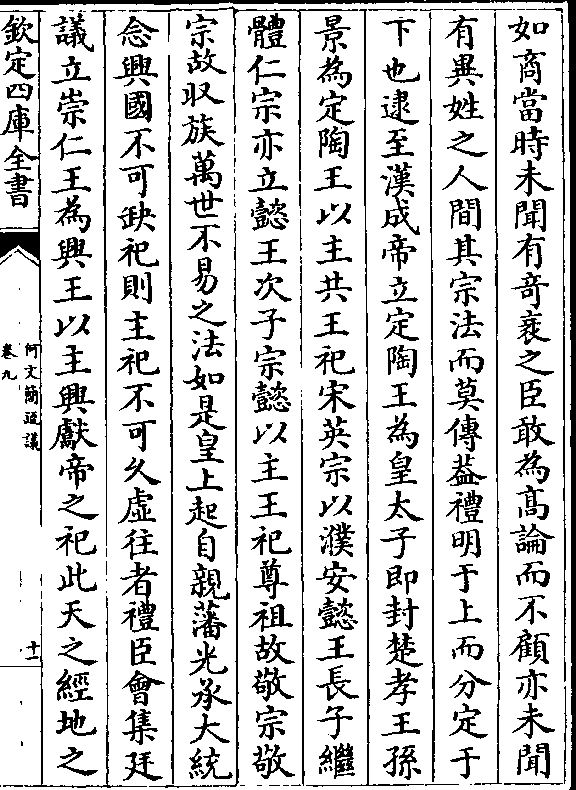 如商當時未聞有奇衺之臣敢為髙論而不顧亦未聞
有異姓之人間其宗法而莫傳葢禮明于上而分定于
下也逮至漢成帝立定陶王為皇太子即封楚孝王孫
景為定陶王以主共王祀宋英宗以濮安懿王長子繼
體仁宗亦立懿王次子宗懿以主王祀尊祖故敬宗敬
宗故収族萬世不易之法如是皇上起自親藩光承大統
念興國不可缺祀則主祀不可久虚往者禮臣會集廷
議立崇仁王為興王以主興獻帝之祀此天之經地之
欽定四庫全書
何文簡疏議
卷九
十一